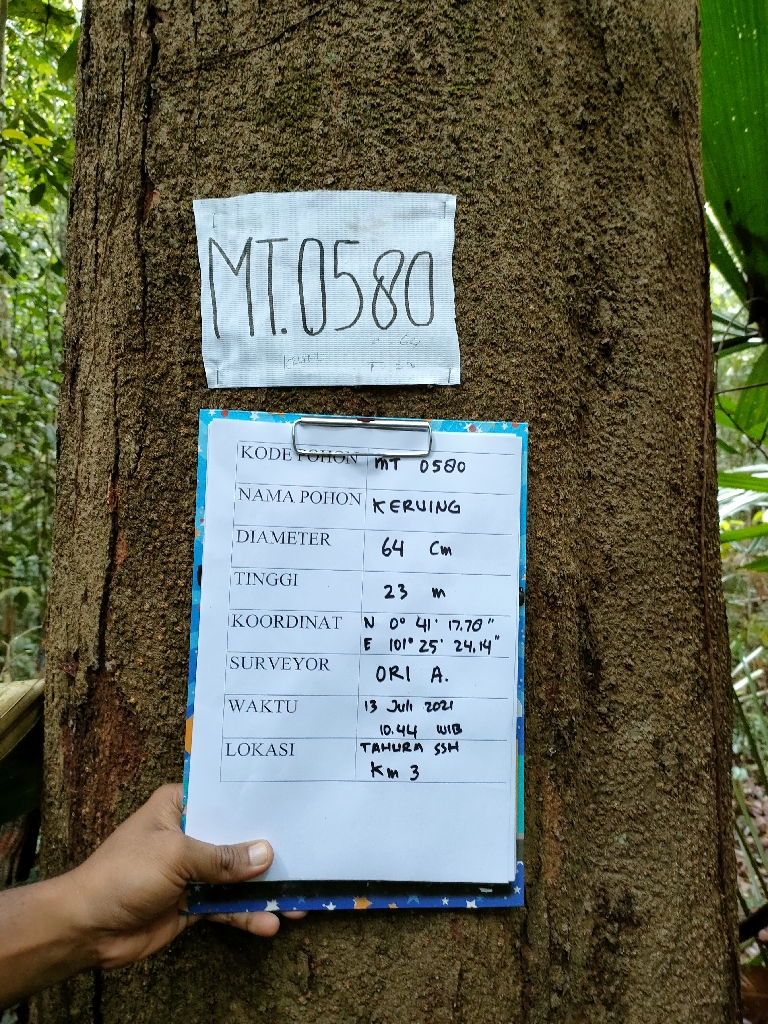 MT.0580
KODE POHON MT 0580
NAMA POHON KERUING
DIAMETER 64 Cm
TINGGI 23 m
KOORDINAT N 0° 41' 17.78"
E 101° 25' 24.14"
SURVEYOR ORI A.
WAKTU 13 Juli 2021
10.44 WIB
LOKASI TAHURA SSH
Km 3